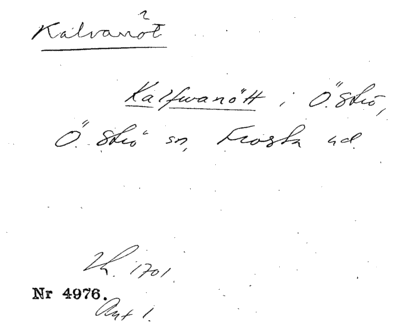 2
Kalvanöt
Kalfwanött i Ö. Strö,
Ö. Strö sn, Frosta hd.
Lh. 1701.
Nr 4976.
Ant 1.